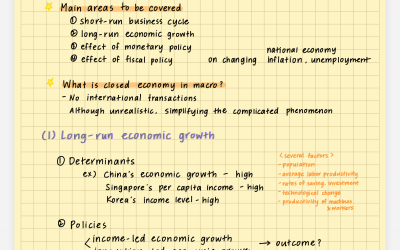 Main areas to be covered
① short-run business cycle
② long-run economic growth
③ effect of monetary policy
④ effect of fiscal policy on changing national economy inflation, unemployment
What is closed economy in macro?
- No international transactions
Although unrealistic, simplifying the complicated phenomenon
(1) Long-run economic growth
① Determinants
ex) China's economic growth - high
Singapore's per capita income - high
Korea's income level - high
< several factors >
- population
- average labor productivity
- rates of saving, investment
- technological change
- productivity of machines
② Policies
income-led economic growth
→ outcome?